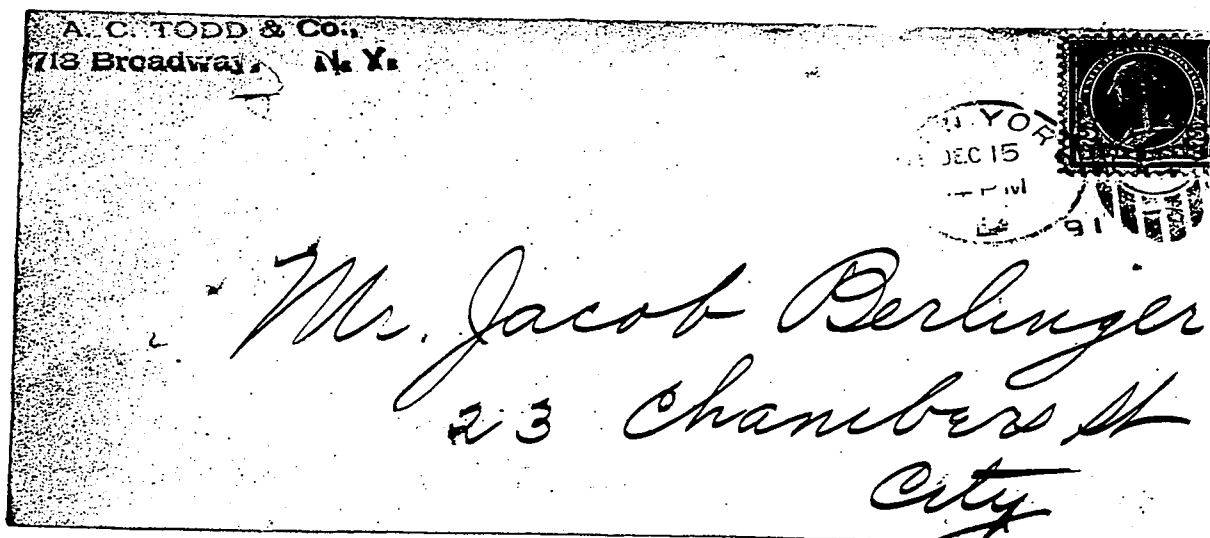 A. C. TODD & Co.,
713 Broadway, N. Y.
N. YOR
DEC 15
PM
91
Mr. Jacob Berlinger
23 Chambers St
City